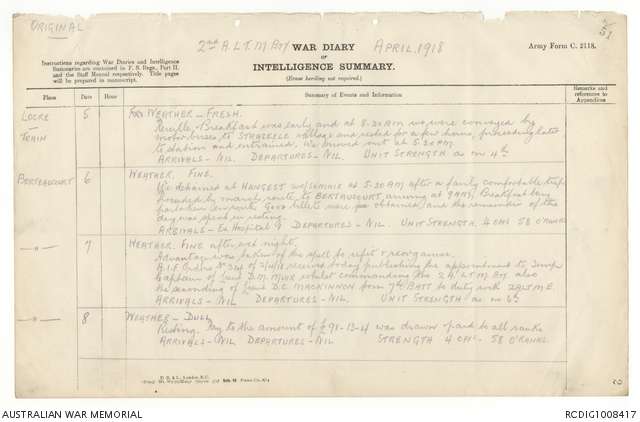 ORIGINAL
2nd A.L.T.M Bty WAR DIARY APRIL, 1918
OF
INTELLIGENCE SUMMARY.
(Erase heading not required.)
Army Form C. 2118.
Instructions regarding War Diaries and Intelligence
Summaries are contained in F. S. Regs., Part II.
and the Staff Manual respectively. Title pages
will be prepared in manuscript.
Place Date Hour Summary of Events and Information Remarks and references to Appendices
LOCRE – TRAIN 5 WEATHER – FRESH.
Reveille & Breakfast was early and at 8.30 AM we were conveyed by
motor busses to STRAZEELE village and rested for a few hours, proceeding later
to station and entrained. We moved out at 5.30 PM
ARRIVALS – NIL DEPARTURES – NIL UNIT STRENGTH as on 4th
BERTEAUCOURT 6 WEATHER. FINE.
We detrained at HANGEST s/SOMME at 5.30 AM after a fairly comfortable trip
proceeded by march route to BERTEAUCOURT arriving at 9 AM, Breakfast
Good billets were obtained, and the remainder of the
day was spent in resting.
ARRIVALS – Ex Hospital DEPARTURES – NIL. UNIT STRENGTH. 4 Offs 58 O'RANKS
–"– 7 WEATHER. FINE after wet night.
Advantage was taken of the spell to refit & reorganise.
A.I.F Orders received today publishing the appointment to Temp
Captain of Lieut whilst commanding the 2 A.L.T.M Bty also
the seconding of Lieut D.C. MACKINNON from 7th BATT to duty with 2ALTMB
ARRIVALS – NIL DEPARTURES – NIL. UNIT STRENGTH as on 6th
–"– 8 WEATHER – DULL
Resting. Pay to the amount of £91-13-4 was drawn & paid to all ranks
ARRIVALS – NIL DEPARTURES – NIL STRENGTH 4 Offs – 58 O'RANKS
AUSTRALIAN WAR MEMORIAL
RCDIG1008417